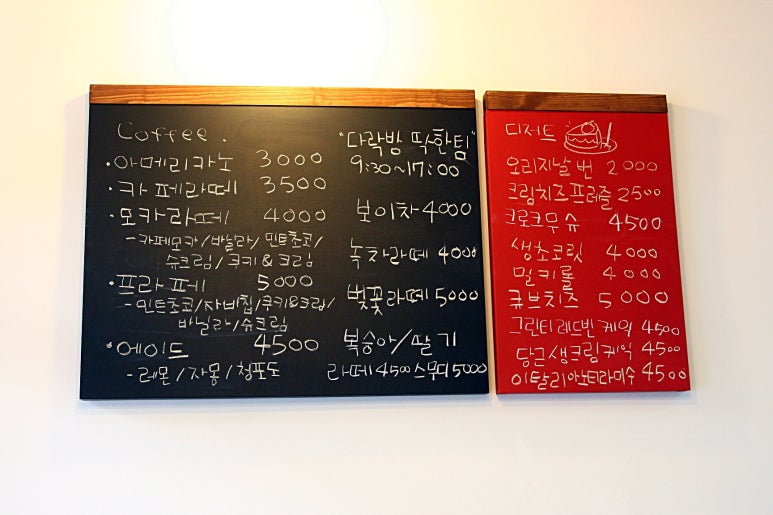 Coffee.
·아메리카노 3000
·카페라떼 3500
·모카라떼 4000
-카페모카/바닐라/민트초코/
슈크림/쿠키&크림
·프라페 5000
-민트초코/자바칩/쿠키&크림/
바닐라/슈크림
·에이드 4500
-레몬/자몽/청포도
"다락방 딱한팀"
9:30~17:00
보이차 4000
녹차라떼 4000
벚꽃라떼 5000
복숭아/딸기
라떼 4500 스무디 5000
디저트
오리지날 번 2000
크림치즈프레즐 2500
크로크무슈 4500
생초코릿 4000
밀키롤 4000
큐브치즈 5000
그린티레드빈케익 4500
당근생크림케익 4500
이탈리아노티라미수 4500